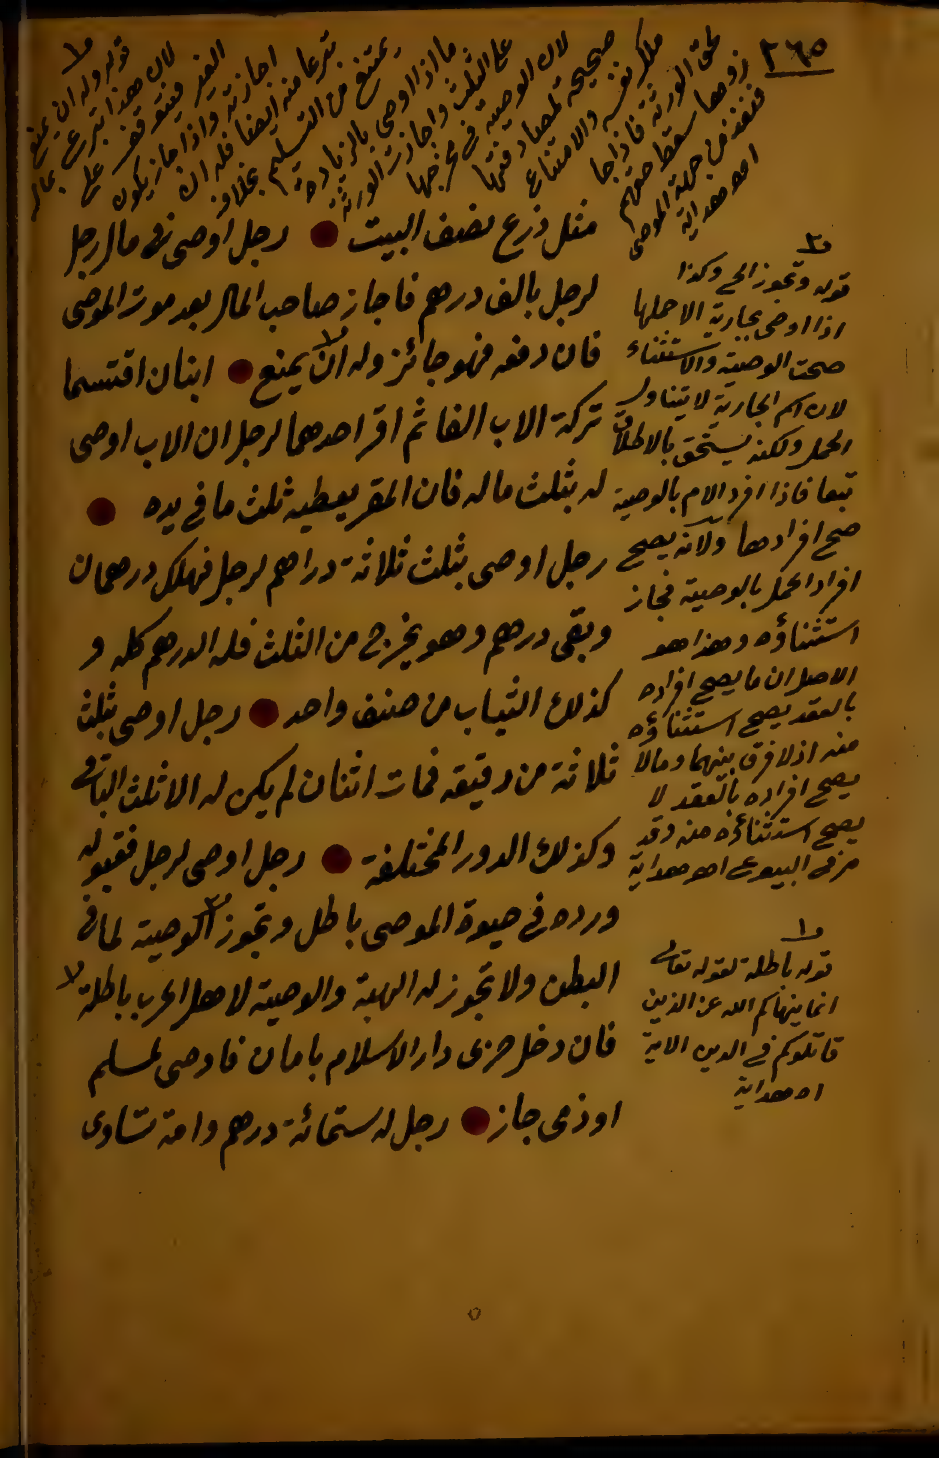 ٢٦٥
١
قوله وله ان يمنع
لان هذا تبرع بمال
الغير فيتوقف على
اجازته واذا جاز يكون
تبرعا منه ايضا فله ان
يمتنع من التسليم بخلاف
ما اذا اوصى بالزيادة
على الثلث واجازت الورثة
لان الوصية في مخرجها
صحيحة لمصادفتها
ملك نفسه والامتناع
لحق الورثة فاذا اجا
زوها سقط حقهم
فنفذ من جهة الموصى
اه هداية
مثل ذرع نصف البيت رجل اوصى في مال رجل
لرجل بالف درهم فاجاز صاحب المال بعد موت الموصى
فان دفعه فهو جائز وله ان يمنع ابنان اقتسما
تركة الاب الفا ثم اقر احدهما لرجل ان الاب اوصى
له بثلث ماله فان المقر يعطيه ثلث ما في يده
رجل اوصى بثلث ثلاثة دراهم لرجل فهلك درهمان
وبقى درهم وهو يخرج من الثلث فله الدرهم كله و
كذلك الثياب من صنف واحد رجل اوصى بثلث
ثلاثة من رقيقه فمات اثنان لم يكن له الا ثلث الباقى
وكذلك الدور المختلفة رجل اوصى لرجل فقبوله
ورده في حيوة الموصى باطل وتجوز الوصية لما في
البطن ولا تجوز له الهبة والوصية لاهل الحرب باطلة
فان دخل حربى دار الاسلام بامان فاوصى لمسلم
او ذمى جاز رجل له ستمائة درهم وامة تساوى
٢
قوله وتجوز الخ وكذا
اذا اوصى بجارية الا حملها
صحت الوصية والاستثناء
لان اسم الجارية لا يتناول
الحمل ولكنه يستحق بالاطلاق
تبعا فاذا افرد الام بالوصية
صح افرادها ولانه يصح
افراد الحمل بالوصية فجاز
استثناؤه وهذا هو
الاصل ان ما يصح افراده
بالعقد يصح استثناؤه
منه اذ لا فرق بينهما وما لا
يصح افراده بالعقد لا
يصح استثناؤه منه وقد
مر في البيوع اه هداية
١
قوله باطلة لقوله تعالى
انما ينهاكم الله عن الذين
قاتلوكم في الدين الاية
اه هداية